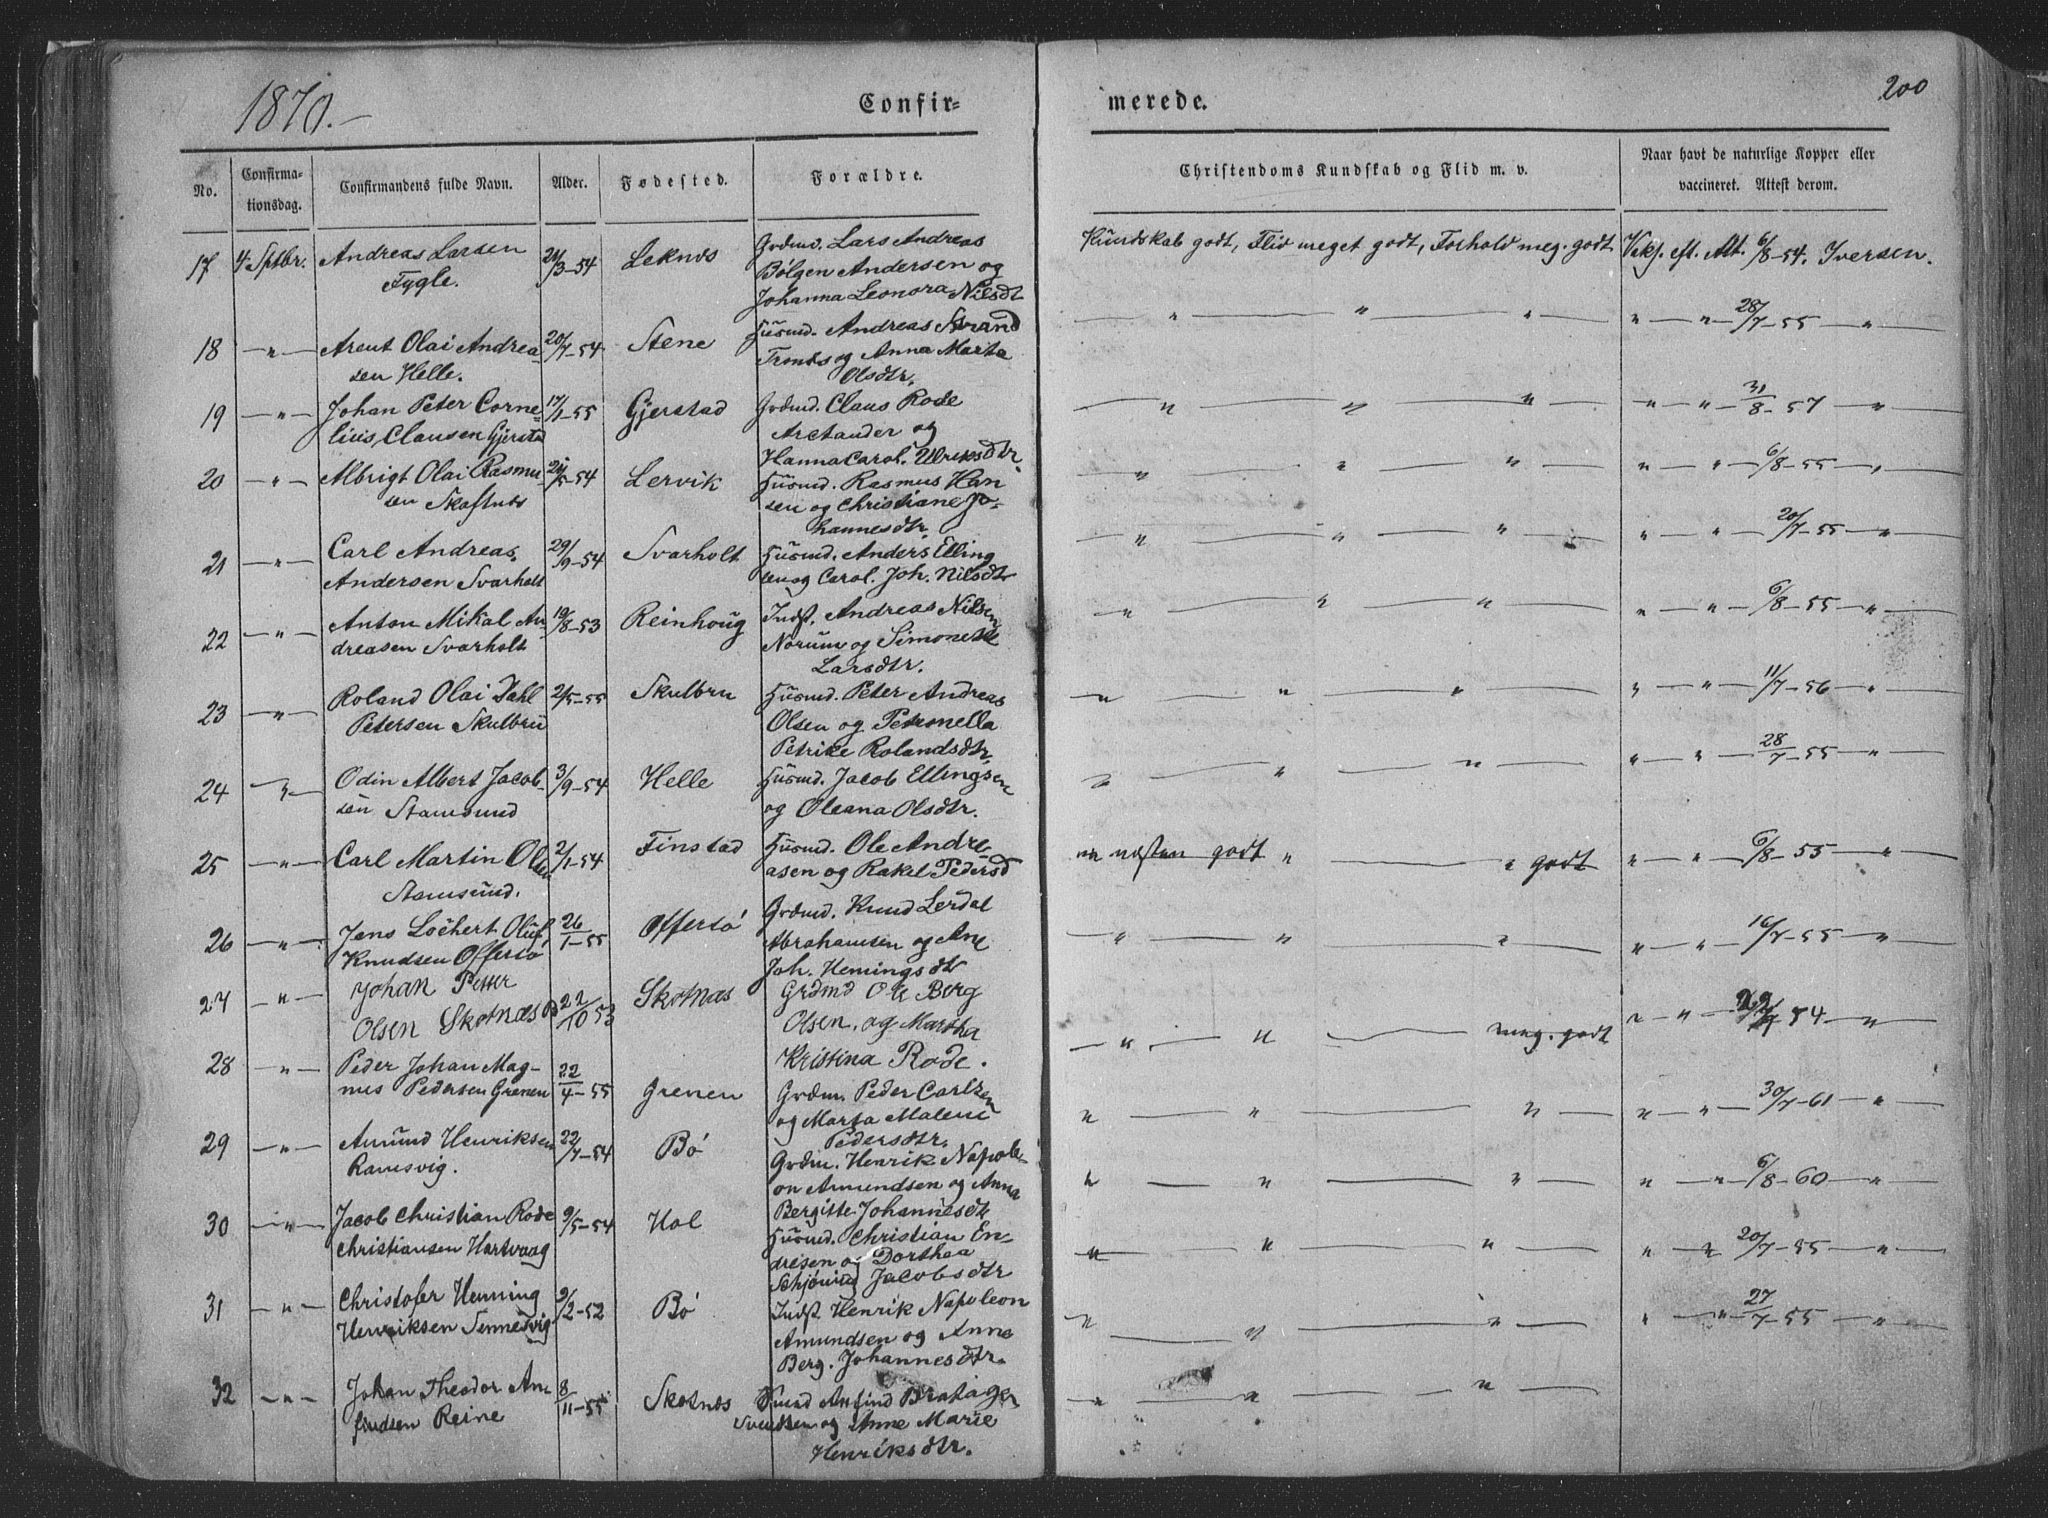 1870.-
Confir=
merede.
200
No.
Confirma-
tionsdag.
Confirmandens fulde Navn.
Alder.
Fødested.
Forældre.
Christendoms Kundskab og Flid m. v.
Naar havt de naturlige Kopper eller
vaccineret. Attest derom.
17 4 Sptbr. Andreas Larsen 21/3-54 Leknes Grdmd. Lars Andreas
Fygle. Bølgen Andersen og
Johanna Leonora Nilsdt
Kundskab godt, Flid meget godt, Forhold meg. godt Vakc. eft. Att. 6/8-54. Iversen.
18 -"- Arent Olai Andrea- 20/7-54 Stene Husmd. Andreas Strand
sen Helle. Tronds og Anna Marta
Olsdtr.
" " " " " 28/7-55 "
19 -"- Johan Peter Corne- 17/1-55 Gjerstad Grdmd. Claus Rode
lius, Clausen Gjersta Arctander og
Hanna Carol. Ulriksdtr.
" " " " " 31/8-57 "
20 -"- Albrigt Olai Rasmu 21/5-54 Lervik Husmd. Rasmus Han
sen Skaftnes sen og Christiane Jo-
hannesdtr.
" " " " " 6/8-55 "
21 -"- Carl Andreas 29/9-54 Svarholt Husmd. Anders Elling
Andersen Svarholt sen og Carol. Joh. Nilsdtr
" " " " " 20/7-55 "
22 -"- Anton Mikal An 19/8-53 Reinhoug Indst. Andreas Nilsen
dreasen Svarholt Norum og Simonette
Larsdtr.
" " " " " 6/8-55 "
23 -"- Roland Olai Dahl 2/5-55 Skulbru Husmd. Peter Andreas
Petersen Skulbru Olsen og Petronella
Petrike Rolandsdtr.
" " " " " 11/7-56 "
24 -"- Odin Albert Jacob- 3/9-54 Helle Husmd. Jacob Ellingsen
sen Stamsund og Oleana Olsdtr.
" " " " " 28/7-55 "
25 -"- Carl Martin Olsen 2/1-54 Finstad Husmd. Ole Andre-
Stamsund. asen og Rakel Pedersd
næsten godt " " godt " " 6/8-55 "
26 -"- Jens Lochert Oluf 26/1-55 Offersø Grdmd. Knud Lerdal
Knudsen Offersø Abrahamsen og Ane
Joh. Hemingsdtr
" " " " " 16/7-55 "
27 -"- Johan Petter 22/10 53 Skotnæs Grdmd Ole Berg
Olsen Skotnæs Olsen, og Martha
Kristina Rode.
" " meg. godt " " 54 "
28 -"- Peder Johan Mag- 22/4-55 Grenen Grdm. Peder Carlsen
nus Pedersen Grenen og Marta Maleni
Pedersdtr.
" " " " " 30/7-61 "
29 -"- Amund Henriksen 22/7-54 Bø Grdm. Henrik Napole-
Ramsvig. on Amundsen og Anna
Bergitte Johannesdtr
" " " " " 6/8-60 "
30 -"- Jacob Christian Rode 9/5-54 Hol Husmd. Christian En-
Christiansen Hartvaag dresen og Dorthea
Schjøning Jacobsdtr
" " " " " 20/7-55 "
31 -"- Christofer Henning 9/2-52 Bø Indst. Henrik Napoleon
Henriksen Sennesvig Amundsen og Anne
Berg. Johannesdtr.
" " " " " 27/7-55 "
32 -"- Johan Theodor An- 8/11-55 Skotnes Husmd Anfind Bratager
findsen Reine Svendsen og Anne Marie
Henriksdtr.
" " "